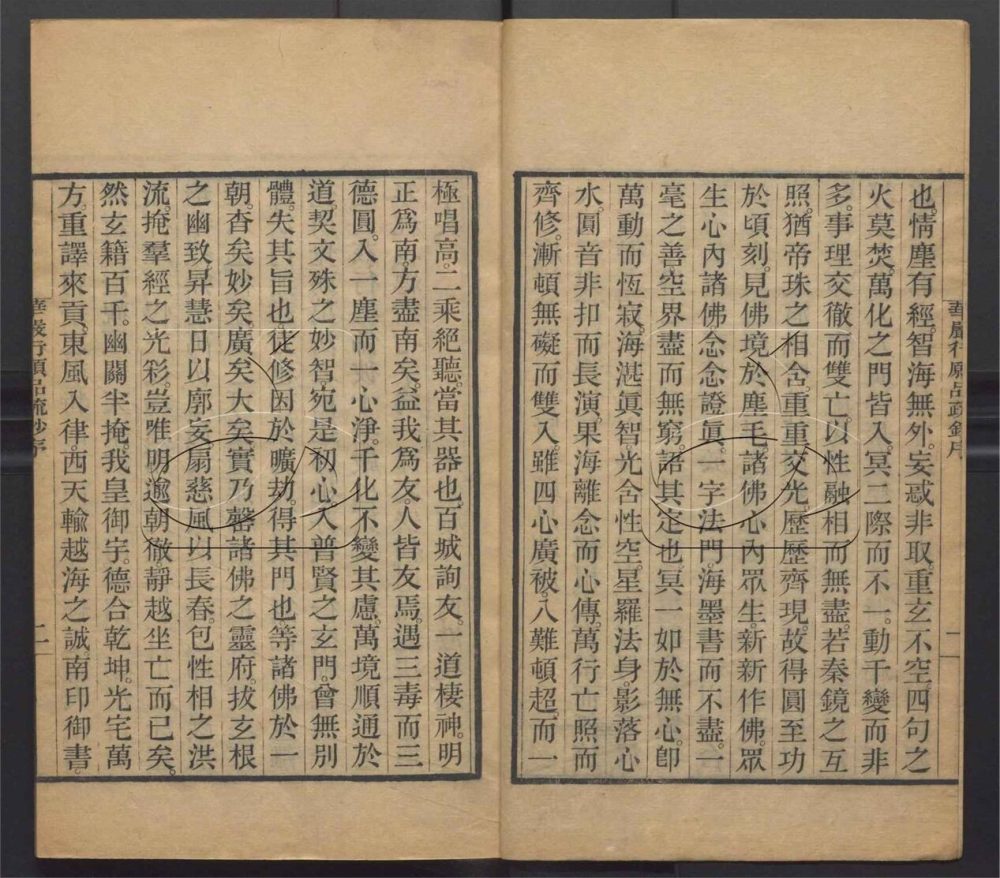 華嚴行願品疏鈔序 一
也。情塵有經。智海無外。妄惑非取。重玄不空。四句之
火莫焚。萬化之門皆入。冥二際而不一。動千變而非
多。事理交徹而雙亡。以性融相而無盡。若秦鏡之互
照。猶帝珠之相含。重重交光。歷歷齊現。故得圓至功
於頃刻。見佛境於塵毛。諸佛心內眾生。新新作佛。眾
生心內諸佛。念念證眞。一字法門。海墨書而不盡。一
毫之善。空界盡而無窮。語其定也。冥一如於無心。卽
萬動而恆寂。海湛眞智。光含性空。星羅法身。影落心
水。圓音非扣而長演。果海離念而心傳。萬行亡照而
齊修。漸頓無礙而雙入。雖四心廣被。八難頓超。而一
極唱高。二乘絕聽。當其器也。百城詢友。一道棲神。明
正爲南方盡南矣。益我爲友人皆友焉。遇三毒而三
德圓。入一塵而一心淨。千化不變其慮。萬境順通於
道。契文殊之妙智。宛是初心。入普賢之玄門。曾無別
體。失其旨也。徒修因於曠劫。得其門也。等諸佛於一
朝。杳矣妙矣。廣矣大矣。實乃罄諸佛之靈府。拔玄根
之幽致。昇慧日以廓妄。扇慈風以長春。包性相之洪
流。掩羣經之光彩。豈唯明逾朝徹。靜越坐亡而已矣。
然玄籍百千。幽關半掩。我皇御宇。德合乾坤。光宅萬
方。重譯來貢。東風入律。西天輸越海之誠。南印御書。
華嚴行願品疏鈔序 二